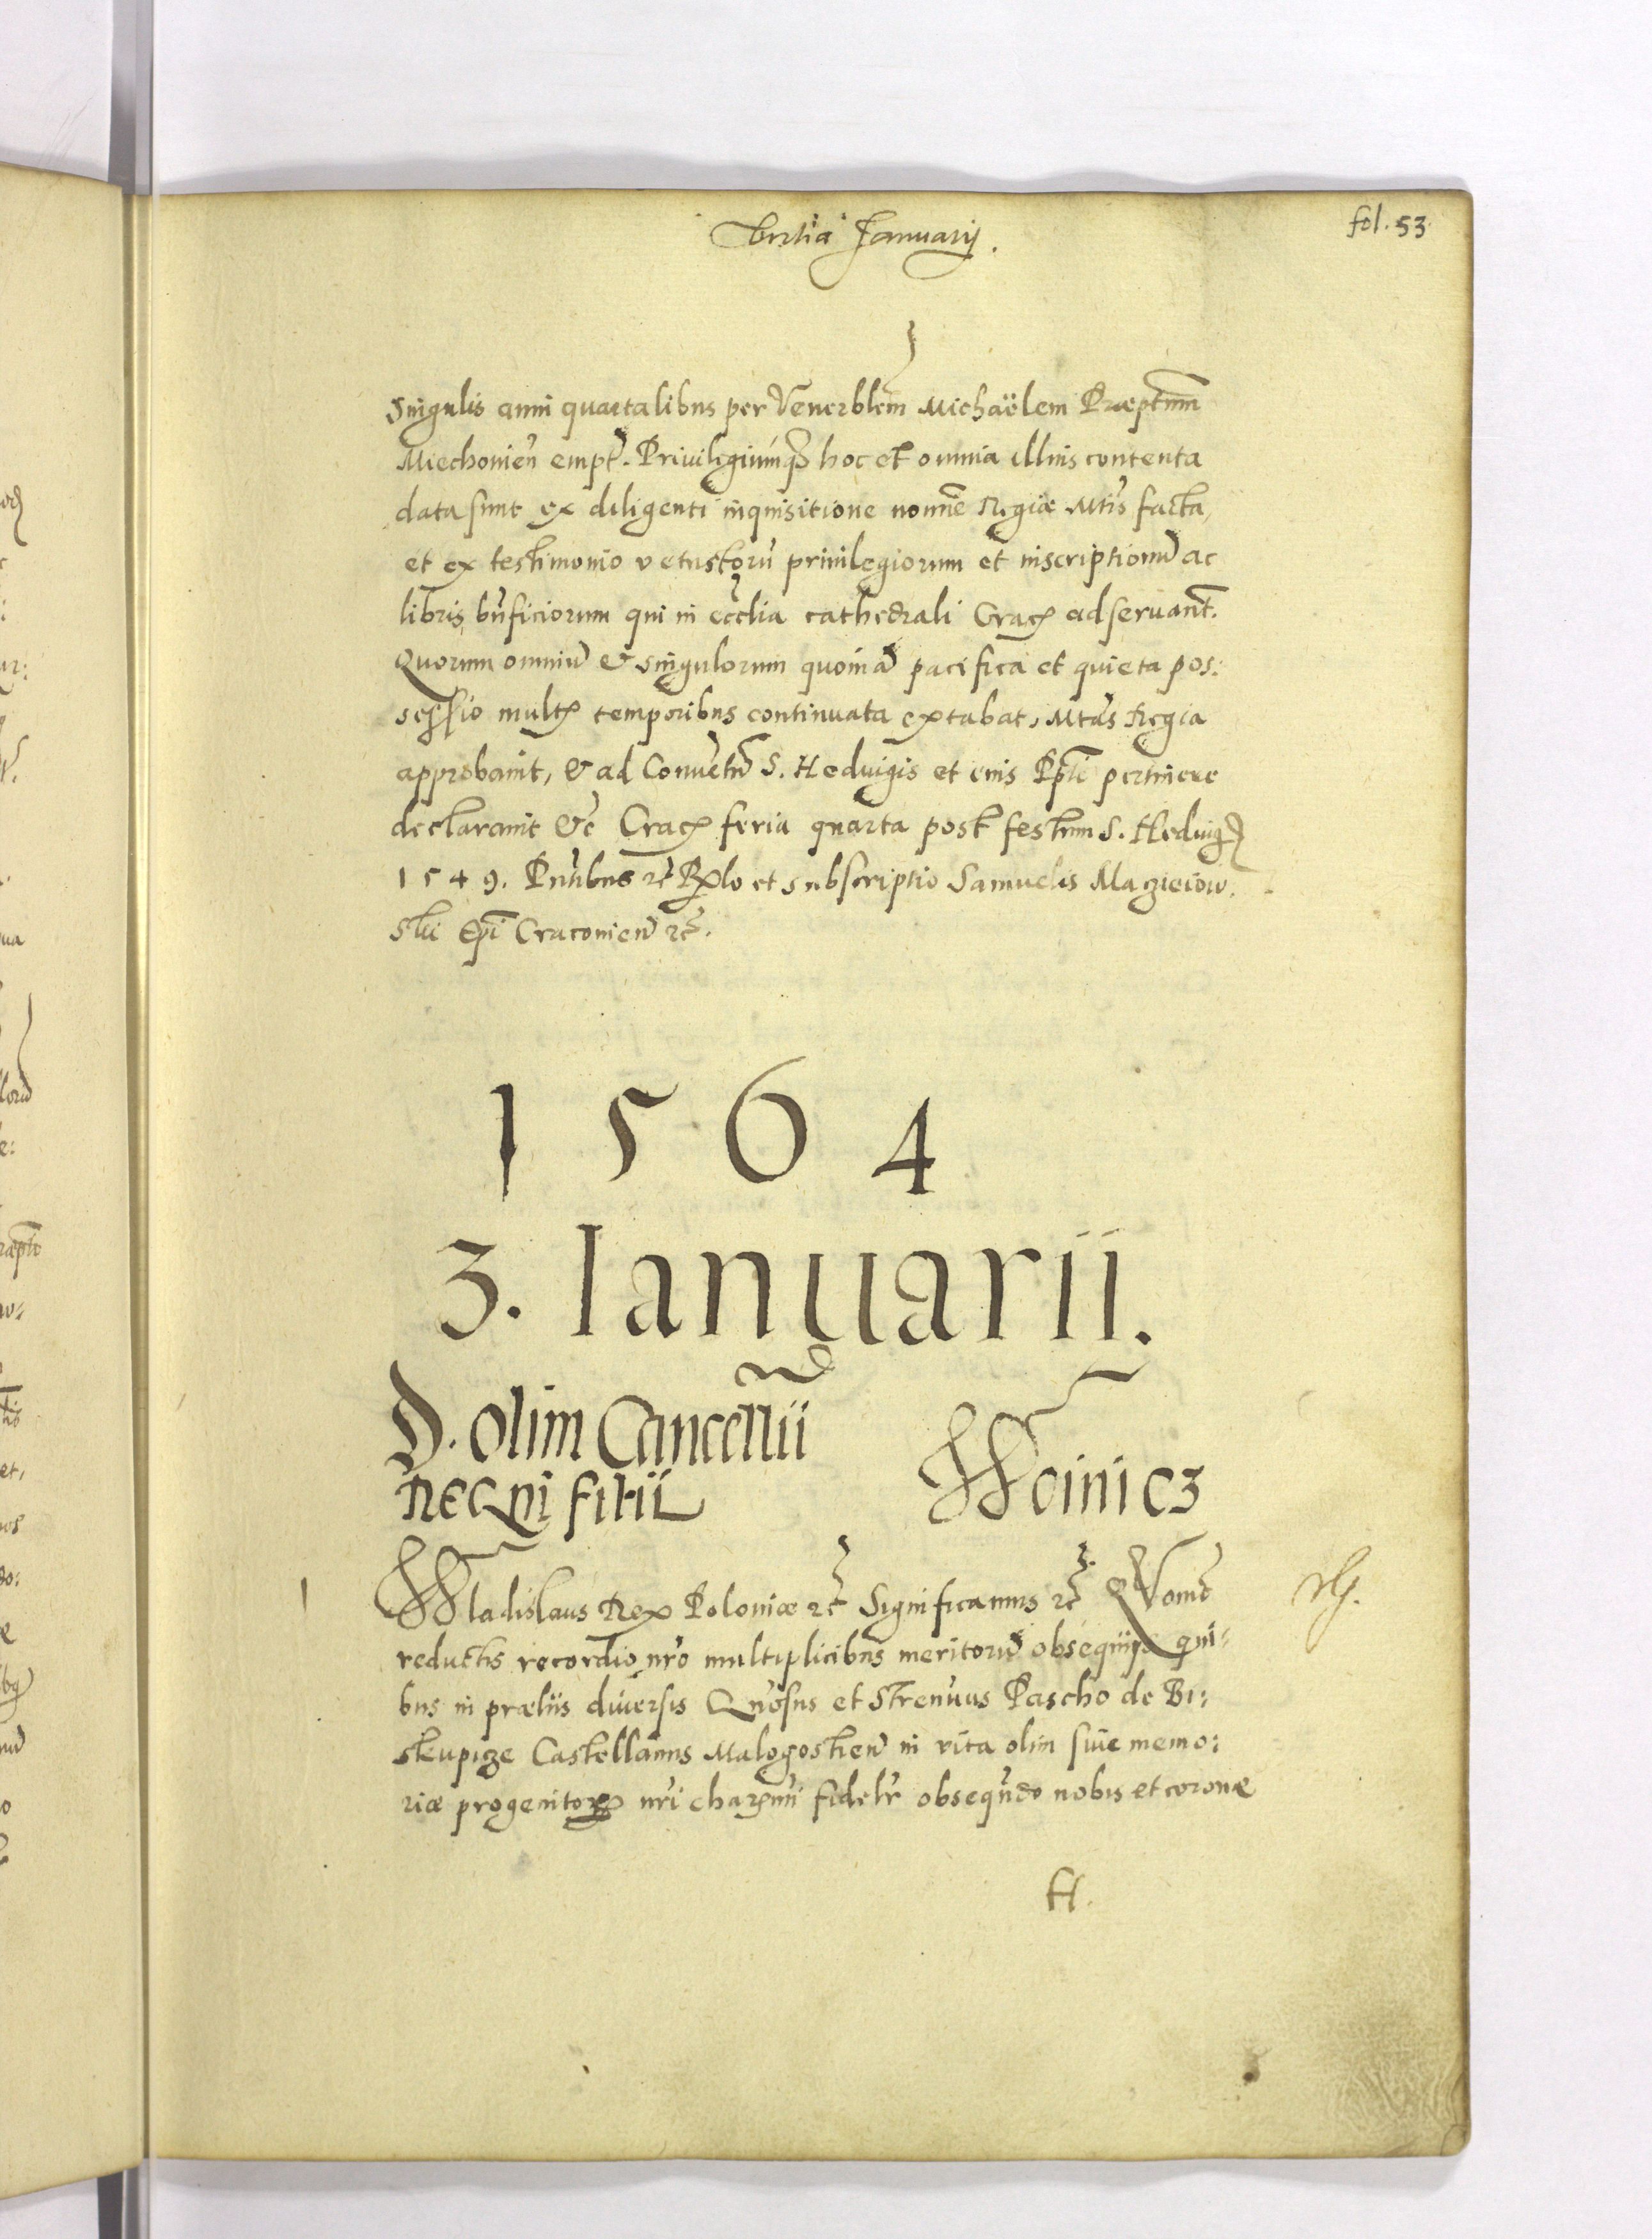 Tertia Januarij.
fol. 53
Singulis anni quartalibus per Venerblem Michaëlem Præptum
Miechovien̄ empt̄. Privilegiumq₃ hoc et omnia illius contenta
data sunt ex diligenti inquisitione nomīe Regiæ Mtis facta,
et ex testimonio vetustoru privilegiorum et inscriptionū ac
libris bnficiorum qui in ecclia cathedrali Crac̄ adservant.
Quorum omniū & singulorum quoniā pacifica et quieta pos:
sessio mult̄ temporibus continuata extabat, Mtas Regia
approbavit, & ad Conventū S. Hedvigis et eius Ppti pertinere
declaravit &c Crac̄ feria quarta post festum S. Hedviḡ
1549. Pntibus rc̄ Rlo et subscriptio Samuelis Maczieiow:
skii Epi Cracovien̄ rc̄.
1564
3. Ianuarii.
D. olim Cancellrii
Regni filii
Woinicz
1
Wladislaus Rex Poloniæ rc̄ Significamus rc̄ Quomō
reductis recordio nr̄o multiplicibus meritorū obsequijs qui:
bus in præliis diversis Gnosus et strenuus Pascho de Bi:
skupicze Castellanus Malogostien̄ in vita olim suæ memo:
riæ progenitor nr̄i charmi fidelr̄ obsequndo nobis et coronæ
H.